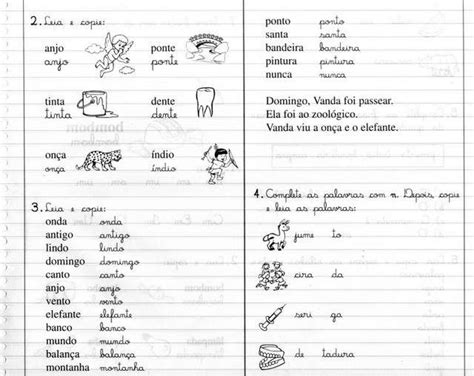 2. Leia e copie:
anjo
anjo
ponte
ponte
tinta
tinta
dente
dente
onça
onça
índio
índio
3. Leia e copie:
onda onda
antigo antigo
lindo lindo
domingo domingo
canto canto
anjo anjo
vento vento
elefante elefante
banco banco
mundo mundo
balança balança
montanha montanha
ponto ponto
santa santa
bandeira bandeira
pintura pintura
nunca nunca
Domingo, Vanda foi passear.
Ela foi ao zoológico.
Vanda viu a onça e o elefante.
4. Complete as palavras com n. Depois, copie
e leia as palavras:
jume to
cira da
seri ga
de tadura